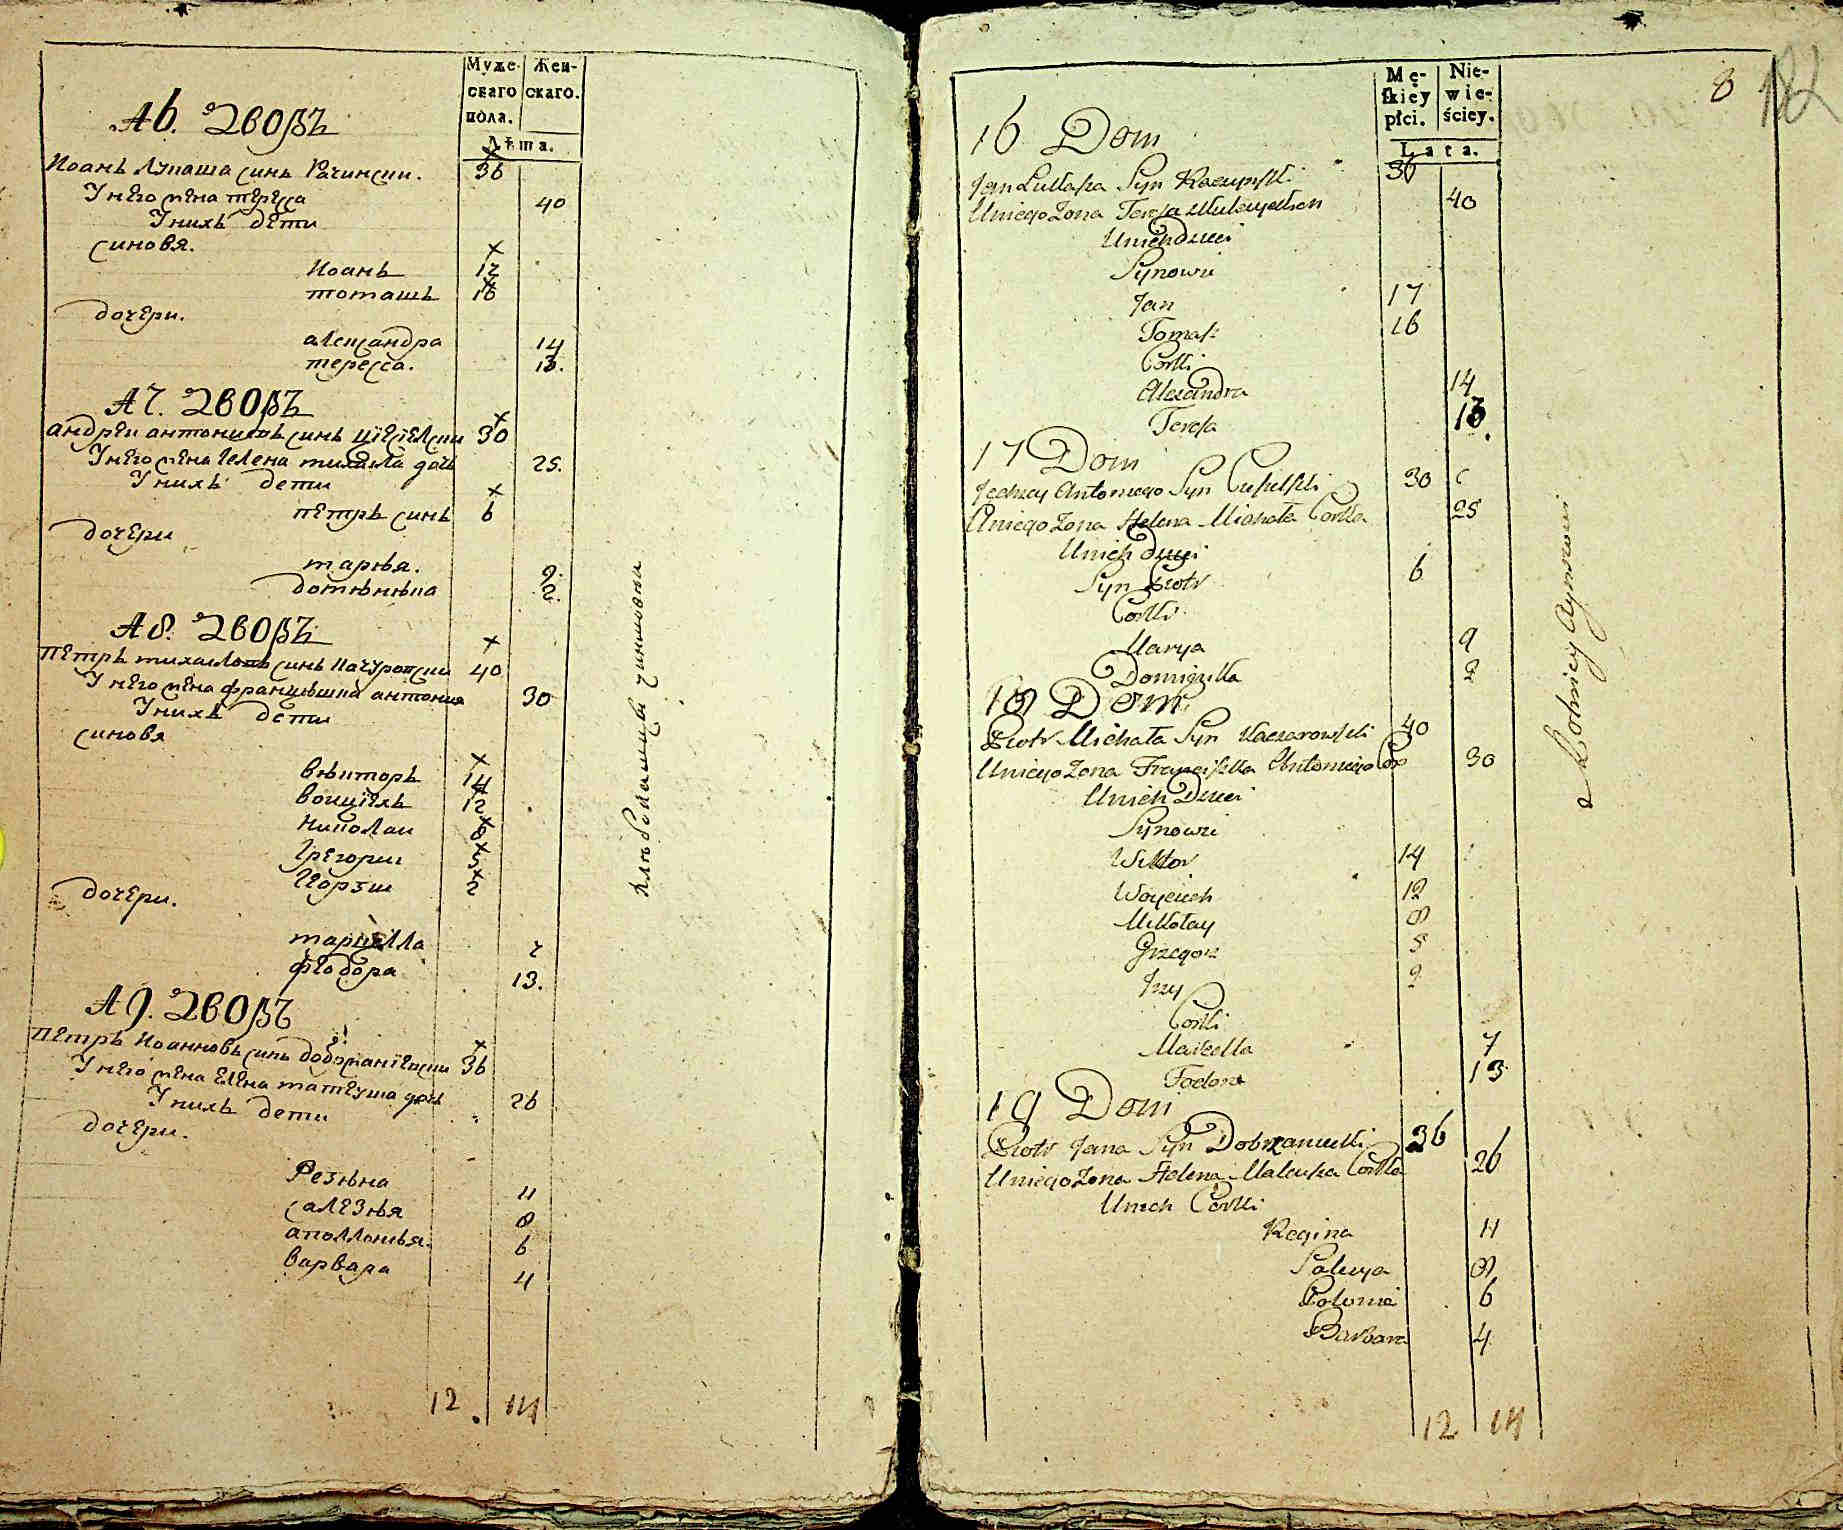 Муже- Жен-
скаго скаго.
пола.
Лѣта.
16. Дворъ
Иоанъ Лукаша синъ Рачински. 36
У него жена тересса 40
У нихъ дети
синовя.
Иоанъ 17
томашъ 16
дочери.
александра 14
тересса. 13.
17. Дворъ
андреи антониевъ синъ 30
У него жена гелена михаила дочь 25.
У нихъ дети
петръ синъ 6
дочери
марья. 9.
2.
18. Дворъ
Петръ михаиловъ синъ 40
У него жена францишка антония 30
У нихъ дети
синовя
викторъ 14
воицехъ 12
Николаи 8
Грегории 5
2
дочери.
марцелла 7
феодора 13.
19. Дворъ
Петръ Иоанновъ синъ 36
У него жена елена матеуша дочь 26
У нихъ дети
дочери.
Резина 11
салезья 8
аполлонья. 6
варвара 4
12. 14
8 182
Mę- Nie-
ſkiey wie-
płci. ściey.
Lata.
16 Dom
Jan Lukasza Syn Raczynski 36
U niego Zona Teresa 40
U nich Dzieci
Synowie
Jan 17
Tomasz 16
Corki
Alexandra 14
Teresa 13.
17 Dom
Jedrzey Antoniego Syn 30
U niego Zona Helena Michała Corka 25
U nich Dzieci
Syn Piotr 6
Corki
Marya 9
Domicella 2
18 Dom
Piotr Michała Syn Kaczarowski 40
U niego Zona Franciszka Antoniego 30
U nich Dzieci
Synowie
Wiktor 14
Woyciech 12
Mikołay 8
Grzegorz 5
Jrzy 2
Corki
Marcella 7
Fodora 13
19 Dom
Piotr Jana Syn Dobrzaniecki 36
U niego Zona Helena Mateusza Corka 26
U nich Corki
Regina 11
Salezya 8
Polonia 6
Barbara 4
12 14